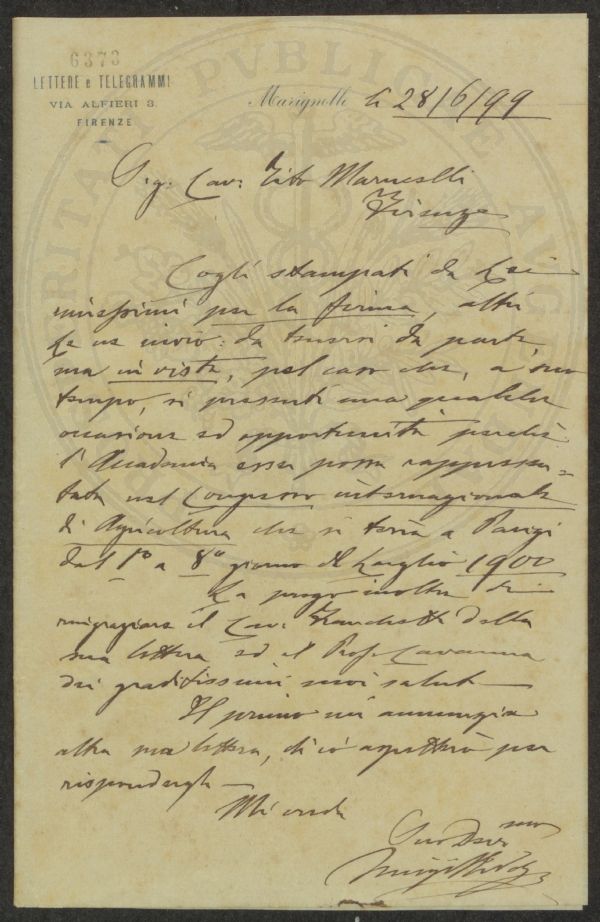 6373
LETTERE e TELEGRAMMI
VIA ALFIERI 3.
FIRENZE
Marignolle li 28/6/99
Sig. Cav. Tito Marucelli
Firenze
Cogli stampati da Lei
per la firma, altri
Le ne invio: da tenersi da parte,
ma in vista, pel caso che, a suo
tempo, si presenti una qualche
occasione ed opportunità perchè
l'Accademia essa possa rappresen=
tata nel Congresso internazionale
di Agricoltura che si terrà a Parigi
dal 1º a 8º giorno di Luglio 1900
La prego inoltre di
ringraziare il Cav. Franchetti della
sua lettera ed il Prof. Cavanna
dei graditissimi suoi saluti
Il primo mi annunzia
altra sua lettera, di ciò aspetterò per
rispondergli
Mi creda
Suo Dev mo
Luigi